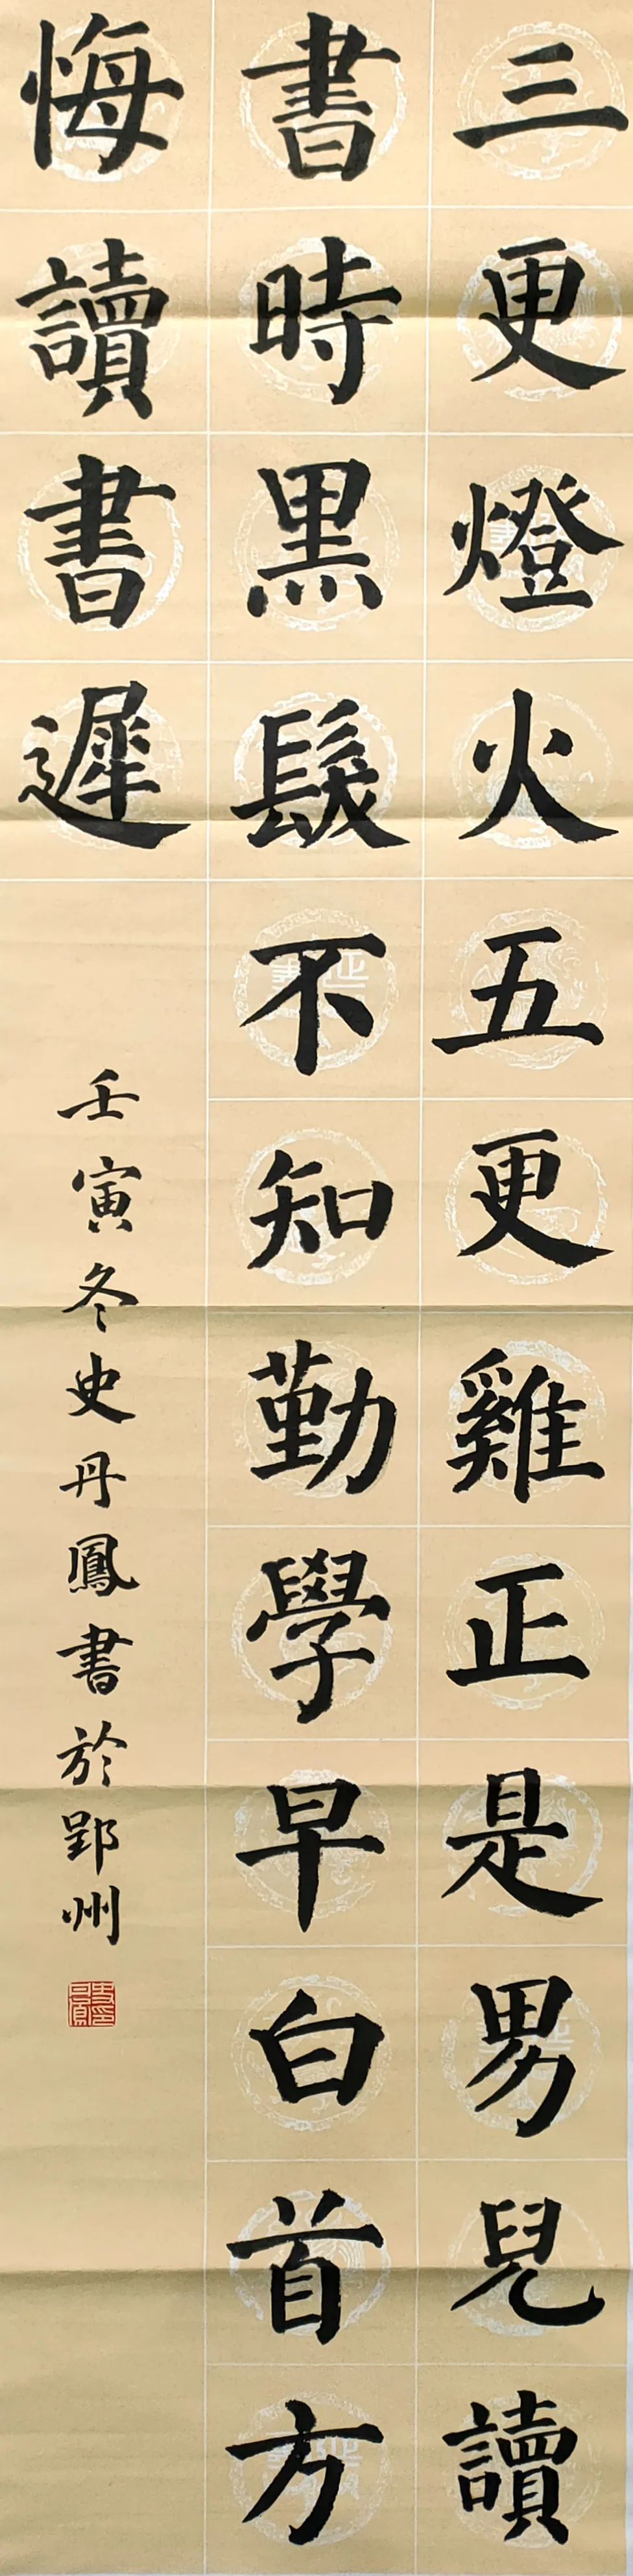 三更燈火五更雞正是男兒讀
書時黑髮不知勤學早白首方
悔讀書遲
壬寅冬史丹鳳書於郢州